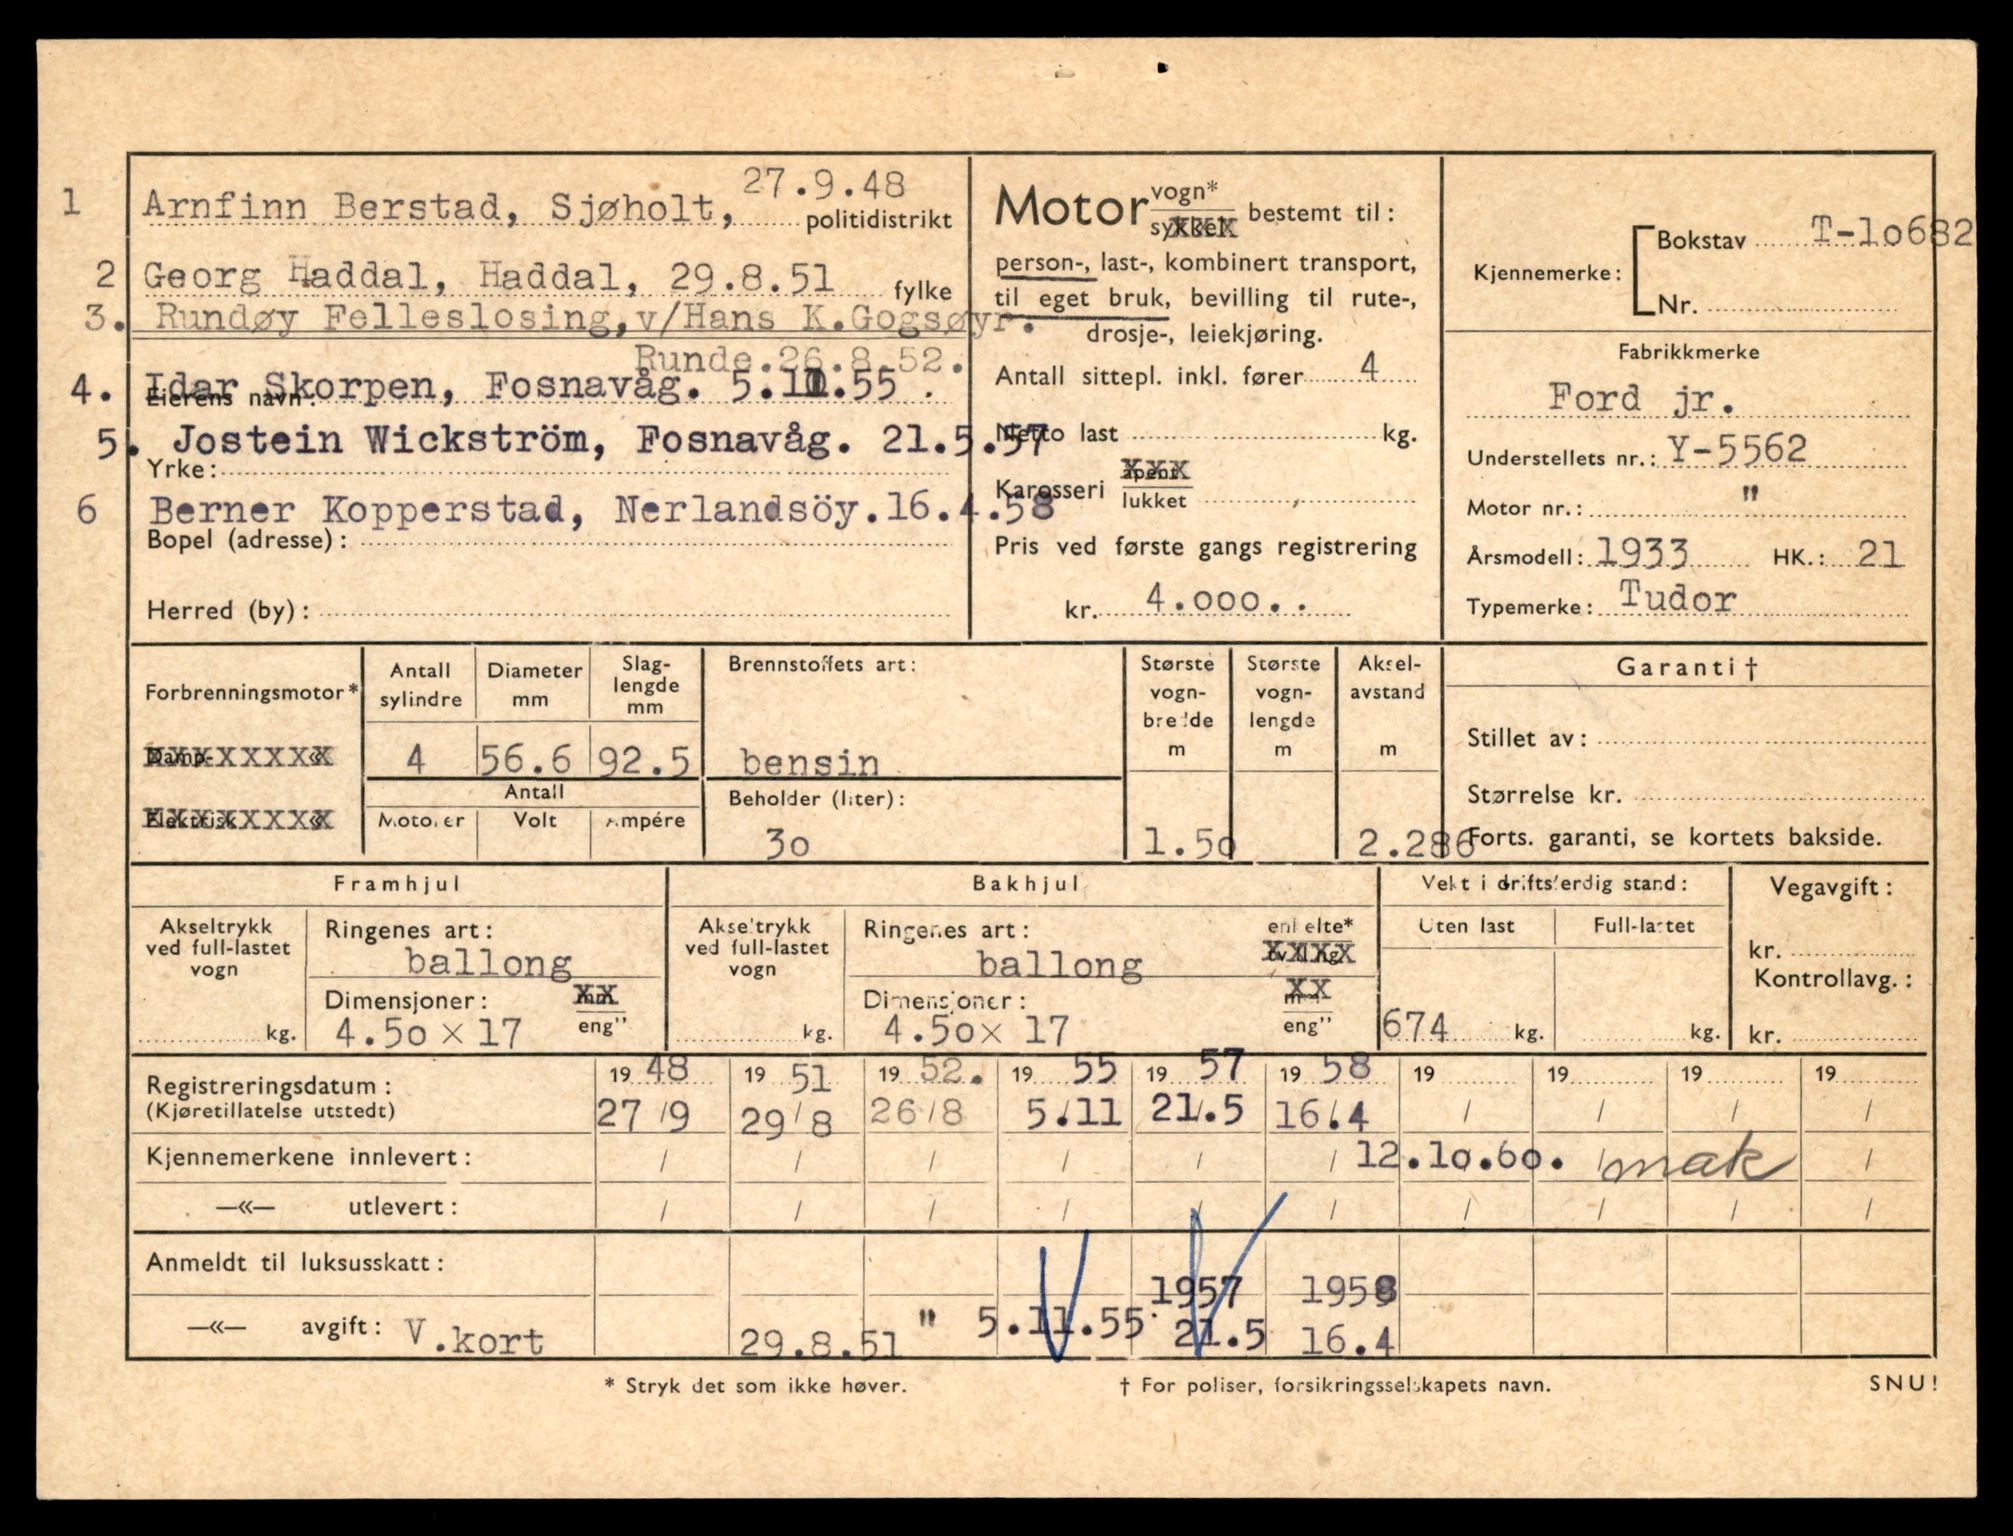 1 Arnfinn Berstad, Sjøholt, 27.9.48 politidistrikt
2 Georg Haddal, Haddal, 29.8.51 fylke
3. Rundøy Felleslosing, v/Hans K.Gogsøyr.
Runde.26.8.52.
4. Idar Skorpen, Fosnavåg. 5.11.55 .
Eierens navn:
5. Jostein Wickström, Fosnavåg. 21.5.57
Yrke:
6 Berner Kopperstad, Nerlandsöy.16.4.58
Bopel (adresse):
Herred (by):
Motor vogn* sykkel bestemt til:
person-, last-, kombinert transport,
til eget bruk, bevilling til rute-,
drosje-, leiekjøring.
Antall sittepl. inkl. fører 4
Netto last kg.
Karosseri åpent lukket
Pris ved første gangs registrering
kr. 4.000..
Kjennemerke: Bokstav T-10682
Nr.
Fabrikkmerke
Ford jr.
Understellets nr.: Y-5562
Motor nr.: "
Årsmodell: 1933 HK.: 21
Typemerke: Tudor
Forbrenningsmotor*
Damp- «
Elektrisk «
Antall sylindre
4
Diameter mm
56.6
Slag-
lengde
mm
92.5
Antall
Motorer Volt Ampére
Brennstoffets art:
bensin
Beholder (liter):
30
Største
vogn-
bredde
m
1.50
Største
vogn-
lengde
m
Aksel-
avstand
m
2.286
Garanti†
Stillet av:
Størrelse kr.
Forts. garanti, se kortets bakside.
Framhjul
Akseltrykk
ved full-lastet
vogn
kg.
Ringenes art:
ballong
Dimensjoner: mm
4.50 × 17 eng"
Bakhjul
Akseltrykk
ved full-lastet
vogn
kg.
Ringenes art: enkelte*
ballong
Dimensjoner: mm
4.50× 17 eng"
Vekt i driftsferdig stand:
Uten last Full-lastet
674 kg. kg.
Vegavgift:
kr.
Kontrollavg.:
kr.
Registreringsdatum: 19 48 19 51 19 52. 19 55 19 57 19 58 19 19 19 19
(Kjøretillatelse utstedt) 27/9 29/8 26/8 5/11 21/.5 16/.4 / / / /
Kjennemerkene innlevert: / / / / / / 12.10.60. / mak /
—«— utlevert: / / / / / / / / /
Anmeldt til luksusskatt:
1957 1958
—«— avgift: V.kort 29.8.51 " 5.11.55. 21.5 16.4
* Stryk det som ikke høver. † For poliser, forsikringsselskapets navn. SNU!